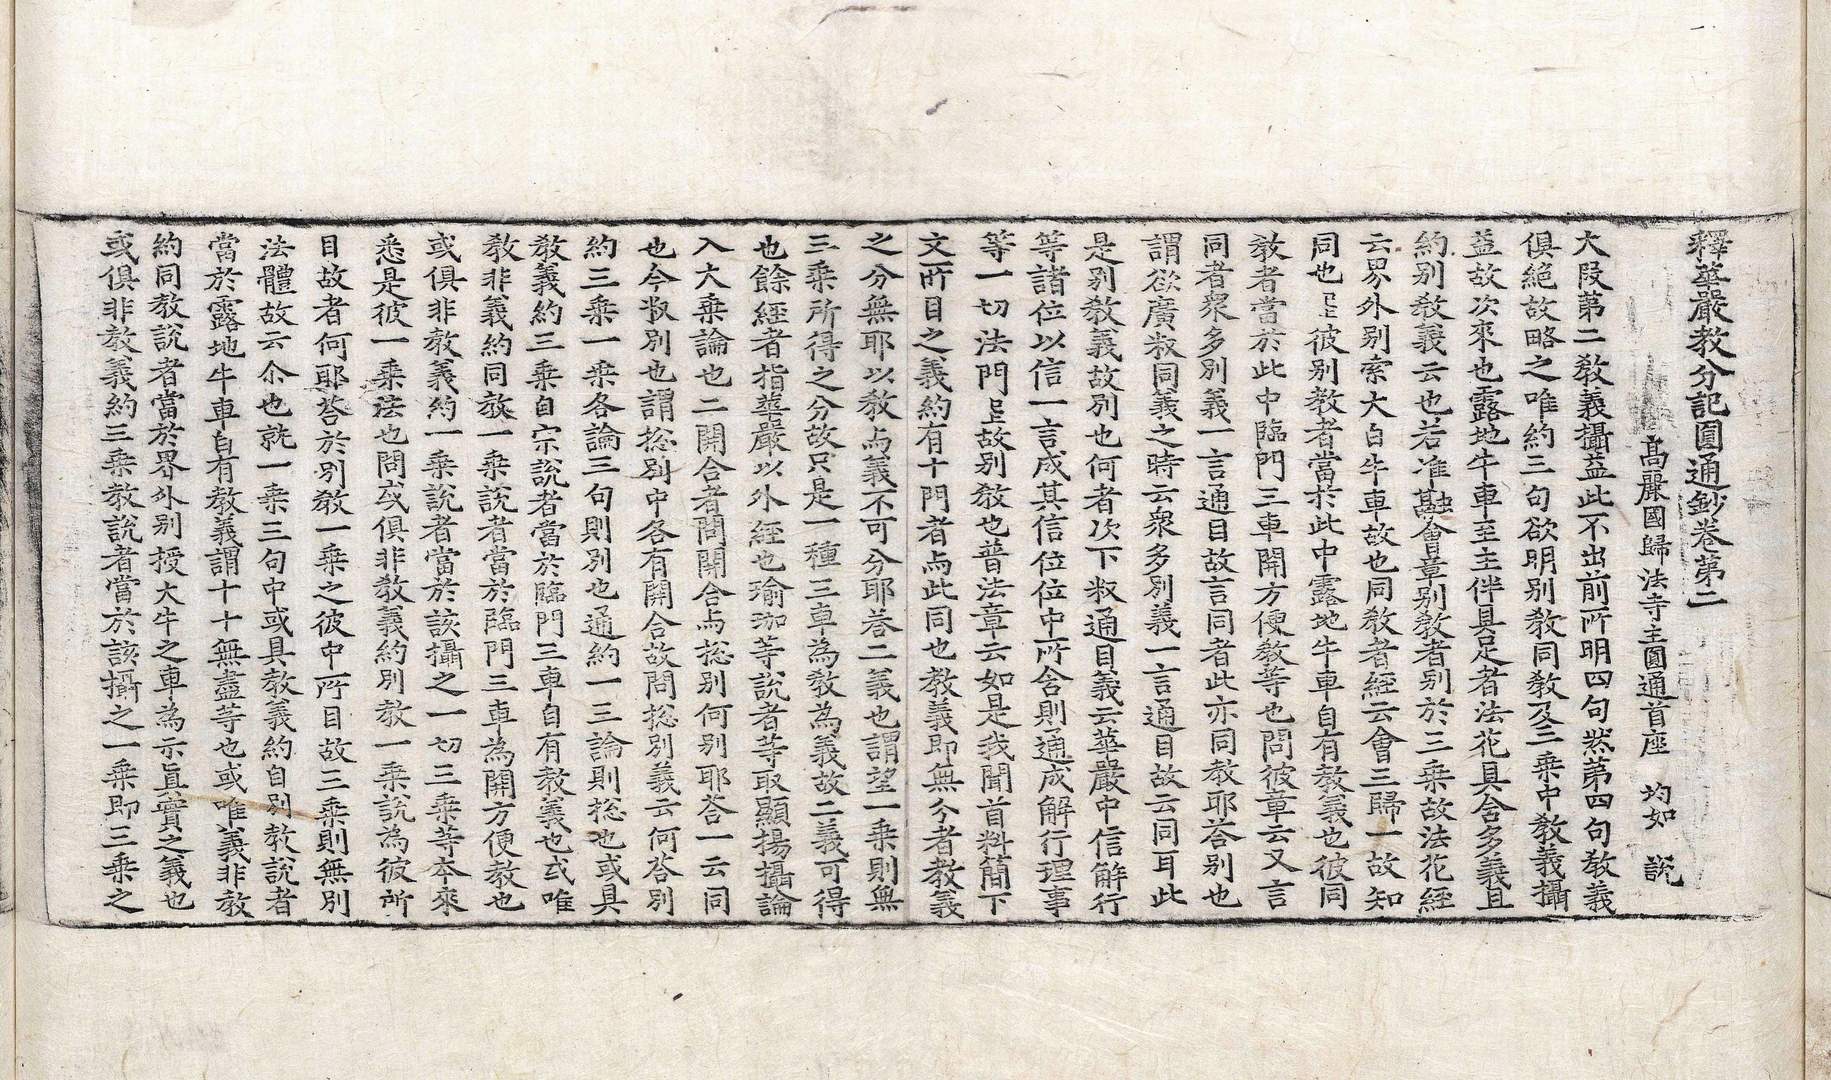 釋華嚴教分記圓通鈔卷第二
髙麗國歸法寺主圓通首座 均如 說
大叚第二教義攝益此不出前所明四句然第四句教義
俱絶故略之唯約三句欲明別教同教及三乗中教義攝
益故次來也露地牛車至主伴具足者法花具含多義且
約別教義云也若准融會章別教者別於三乗故法花經
云界外別索大白牛車故也同教者經云會三歸一故知
同也是彼別教者當於此中露地牛車自有教義也彼同
教者當於此中臨門三車開方便教等也問彼章云又言
同者衆多別義一言通目故言同者此亦同教耶荅別也
謂欲廣㪽同義之時云衆多別義一言通目故云同耳此
是別教義故別也何者次下㪽通目義云華嚴中信解行
等諸位以信一言成其信位位中所含則通成解行理事
等一切法門是故別教也普法章云如是我聞首料簡下
文所目之義約有十門者与此同也教義即無分者教義
之分無耶以教与義不可分耶荅二義也謂望一乗則無
三乗所得之分故只是一種三車為教為義故二義可得
也餘經者指華嚴以外經也瑜珈等說者等取顯揚攝論
入大乗論也二開合者問開合与揔別何別耶荅一云同
也今㪽別也謂揔別中各有開合故問揔別義云何荅別
約三乗一乗各論三句則別也通約一三論則揔也或具
教義約三乗自宗說者當於臨門三車自有教義也或唯
教非義約同教一乗說者當於臨門三車為開方便教也
或俱非教義約一乗說者當於該攝之一切三乗等本來
悉是彼一乗法也問或俱非教義約別教一乗說為彼所
目故者何耶荅於別教一乗之彼中所目故三乗則無別
法體故云尒也就一乗三句中或具教義約自別教說者
當於露地牛車自有教義謂十十無盡等也或唯義非教
約同教說者當於界外別授大牛之車為示真實之義也
或俱非教義約三乗教說者當於該攝之一乗即三乗之